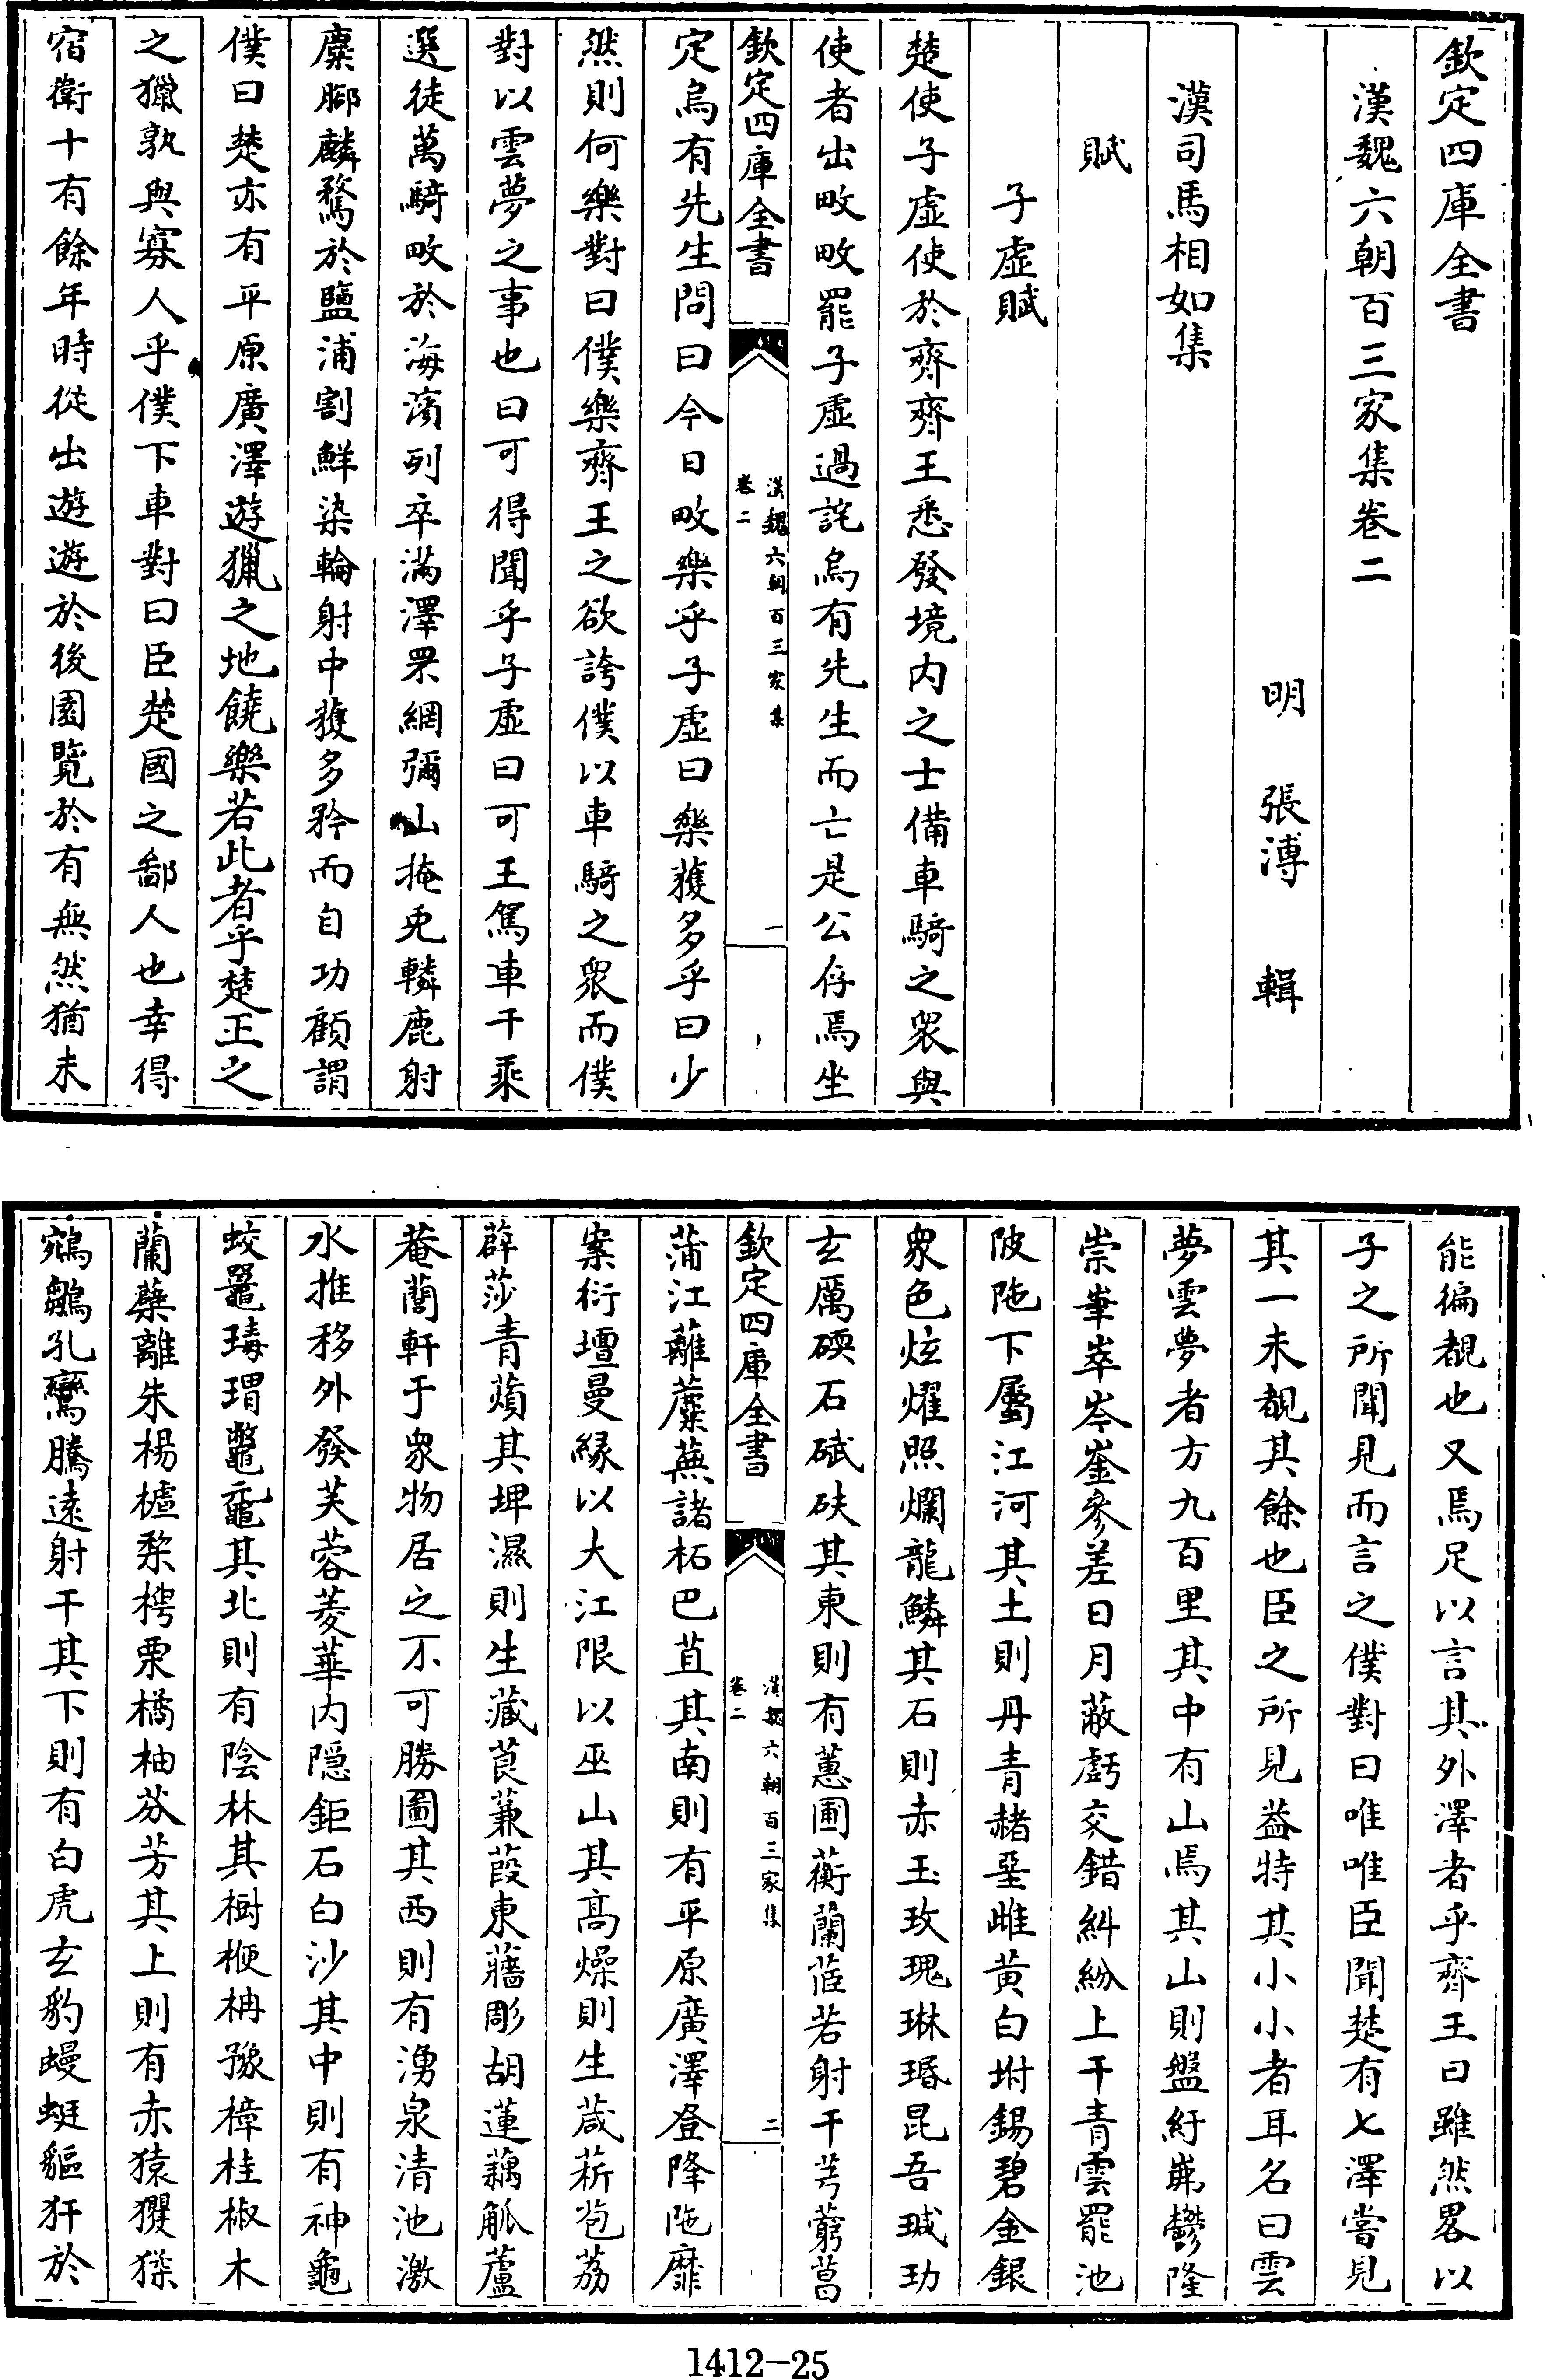 欽定四庫全書
漢魏六朝百三家集卷二
明張溥輯
漢司馬相如集
賦
子虛賦
楚使子虛使於齊齊王悉發境内之士備車騎之衆與
使者出畋畋罷子虛過詫烏有先生而亡是公存焉坐
欽定四庫全書
漢魏六朝百三家集
卷二
一
定烏有先生問曰今日畋樂乎子虛曰樂獲多乎曰少
然則何樂對曰僕樂齊王之欲誇僕以車騎之衆而僕
對以雲夢之事也曰可得聞乎子虛曰可王駕車千乘
選徒萬騎畋於海濱列卒滿澤罘網彌山掩兎轔鹿射
麋腳麟騖於鹽浦割鮮染輪射中獲多矜而自功顧謂
僕曰楚亦有平原廣澤遊獵之地饒樂若此者乎楚王之
之獵孰與寡人乎僕下車對曰臣楚國之鄙人也幸得
宿衛十有餘年時從出遊遊於後園覽於有無然猶未
能徧覩也又焉足以言其外澤者乎齊王曰雖然畧以
子之所聞見而言之僕對曰唯唯臣聞楚有七澤嘗見
其一未覩其餘也臣之所見葢特其小小者耳名曰雲
夢雲夢者方九百里其中有山焉其山則盤紆岪鬱隆
崇嵂崒岑崟參差日月蔽虧交錯糾紛上干青雲罷池
陂陁下屬江河其土則丹青赭堊雌黄白坿錫碧金銀
衆色炫燿照爛龍鱗其石則赤玉玫瑰琳琘昆吾瑊玏
玄厲碝石碔砆其東則有蕙圃蘅蘭茝若射干芎藭菖
欽定四庫全書
漢魏六朝百三家集
卷二
二
蒲江蘺蘪蕪諸柘巴苴其南則有平原廣澤登降陁靡
案衍壇曼緣以大江限以巫山其髙燥則生葴菥苞荔
薜莎青薠其埤濕則生藏莨蒹葭東蘠彫胡蓮藕觚蘆
菴䕡軒于衆物居之不可勝圖其西則有湧泉清池激
水推移外發芙蓉菱華内隱鉅石白沙其中則有神龜
蛟鼉瑇瑁鼈黿其北則有陰林其樹楩柟豫樟桂椒木
蘭蘗離朱楊樝棃梬栗橘柚芬芳其上則有赤猿玃猱
鵷鶵孔鸞騰逺射干其下則有白虎玄豹蟃蜒貙犴於
1412—25